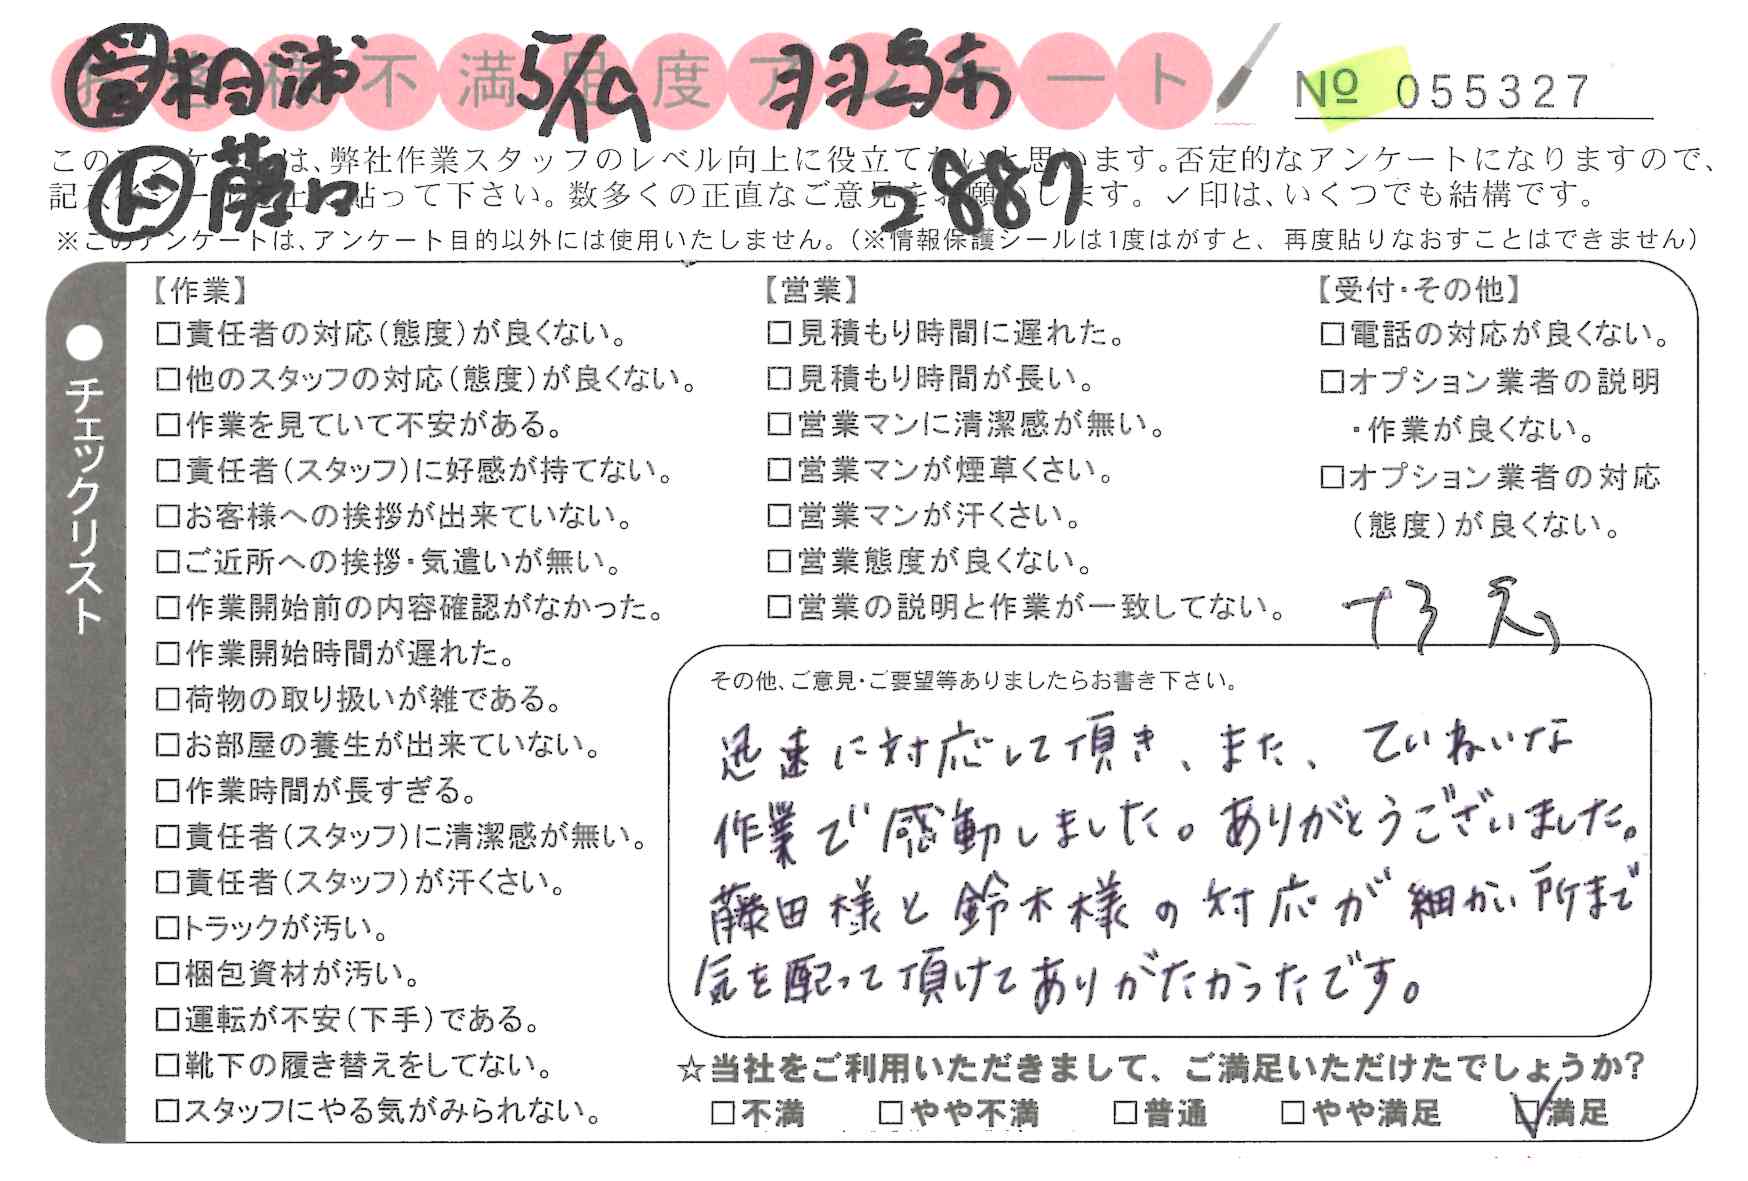 お客様不満足度アンケート
営 相浦 5/19 羽島市
No 055327
ド 藤口 2887
このアンケートは、弊社作業スタッフのレベル向上に役立てたいと思います。否定的なアンケートになりますので、
記入後シールを上に貼って下さい。数多くの正直なご意見をお願いします。✓印は、いくつでも結構です。
※このアンケートは、アンケート目的以外には使用いたしません。(※情報保護シールは1度はがすと、再度貼りなおすことはできません)
●チェックリスト
【作業】
□責任者の対応(態度)が良くない。
□他のスタッフの対応(態度)が良くない。
□作業を見ていて不安がある。
□責任者(スタッフ)に好感が持てない。
□お客様への挨拶が出来ていない。
□ご近所への挨拶・気遣いが無い。
□作業開始前の内容確認がなかった。
□作業開始時間が遅れた。
□荷物の取り扱いが雑である。
□お部屋の養生が出来ていない。
□作業時間が長すぎる。
□責任者(スタッフ)に清潔感が無い。
□責任者(スタッフ)が汗くさい。
□トラックが汚い。
□梱包資材が汚い。
□運転が不安(下手)である。
□靴下の履き替えをしてない。
□スタッフにやる気がみられない。
【営業】
□見積もり時間に遅れた。
□見積もり時間が長い。
□営業マンに清潔感が無い。
□営業マンが煙草くさい。
□営業マンが汗くさい。
□営業態度が良くない。
□営業の説明と作業が一致してない。
【受付・その他】
□電話の対応が良くない。
□オプション業者の説明
・作業が良くない。
□オプション業者の対応
(態度)が良くない。
その他、ご意見・ご要望等ありましたらお書き下さい。
迅速に対応して頂き、また、ていねいな
作業で感動しました。ありがとうございました。
藤田様と鈴木様の対応が細かい所まで
気を配って頂けてありがたかったです。
☆当社をご利用いただきまして、ご満足いただけたでしょうか?
□不満 □やや不満 □普通 □やや満足 ☑満足